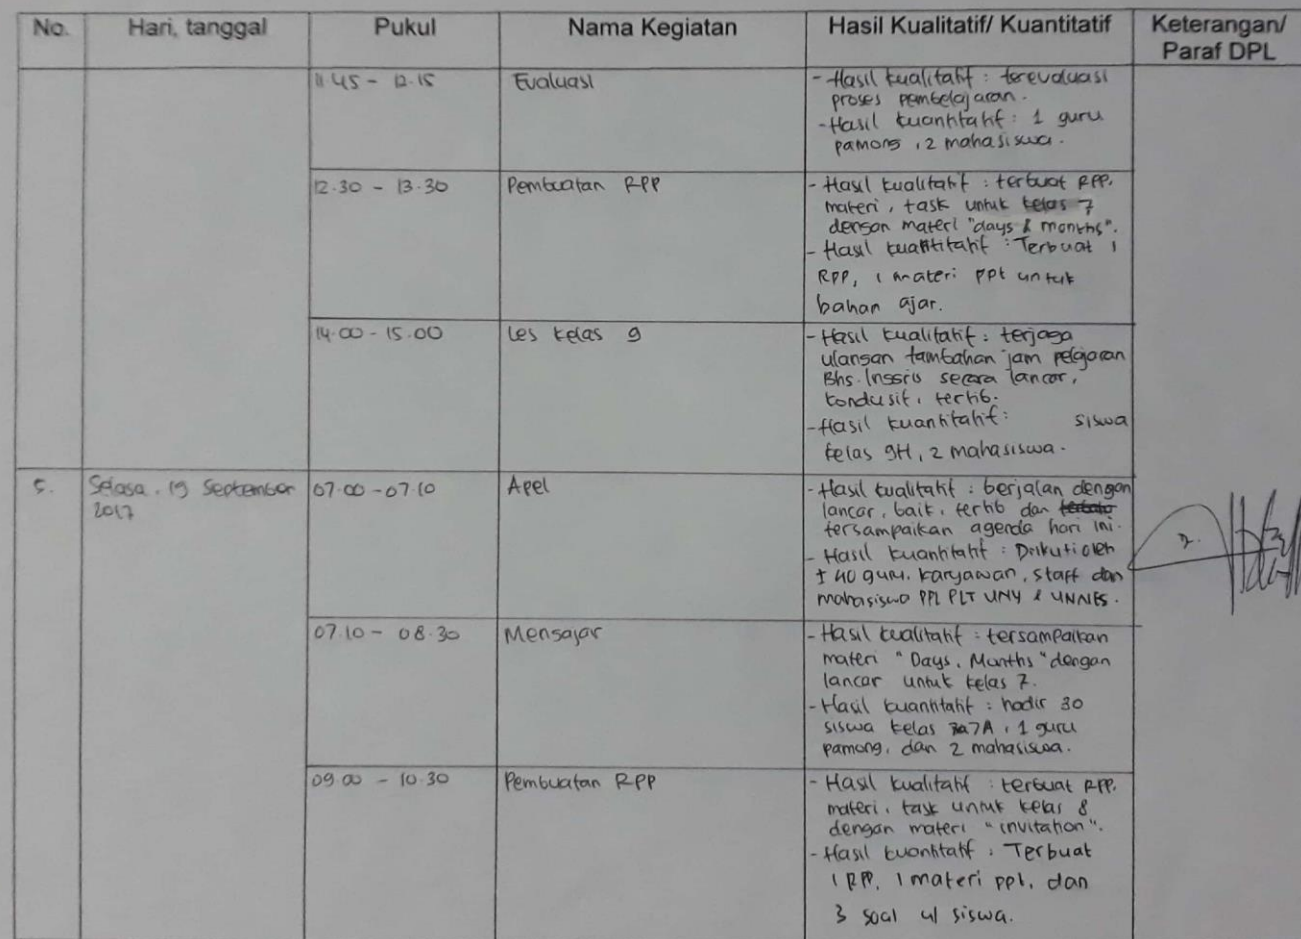 No. Hari, tanggal Pukul Nama Kegiatan Hasil Kualitatif/ Kuantitatif Keterangan/
Paraf DPL
11.45 - 12.15 Evaluasi - Hasil kualitatif : terevaluasi
proses pembelajaran.
- Hasil kuantitatif : 1 guru
pamong, 2 mahasiswa.
12.30 - 13.30 Pembuatan RPP - Hasil kualitatif : terbuat RPP,
materi, task untuk kelas 7
dengan materi "days & months".
- Hasil kuantitatif : Terbuat 1
RPP, 1 materi ppt untuk
bahan ajar.
14.00 - 15.00 Les kelas 9 - Hasil kualitatif : terjaga
ulangan tambahan jam pelajaran
Bhs. Inggris secara lancar,
kondusif, tertib.
- Hasil kuantitatif : siswa
kelas 9H, 2 mahasiswa.
5. Selasa, 19 September 07.00 - 07.10 Apel - Hasil kualitatif : berjalan dengan
2017 lancar, baik, tertib dan
tersampaikan agenda hari ini.
- Hasil kuantitatif : Diikuti oleh
± 40 guru, karyawan, staff dan
mahasiswa PPL PLT UNY & UNNES.
07.10 - 08.30 Mengajar - Hasil kualitatif : tersampaikan
materi "Days, Months" dengan
lancar untuk kelas 7.
- Hasil kuantitatif : hadir 30
siswa kelas 7A, 1 guru
pamong, dan 2 mahasiswa.
09.00 - 10.30 Pembuatan RPP - Hasil kualitatif : terbuat RPP,
materi, task untuk kelas 8
dengan materi "invitation".
- Hasil kuantitatif : Terbuat
1 RPP, 1 materi ppt, dan
3 soal u/ siswa.